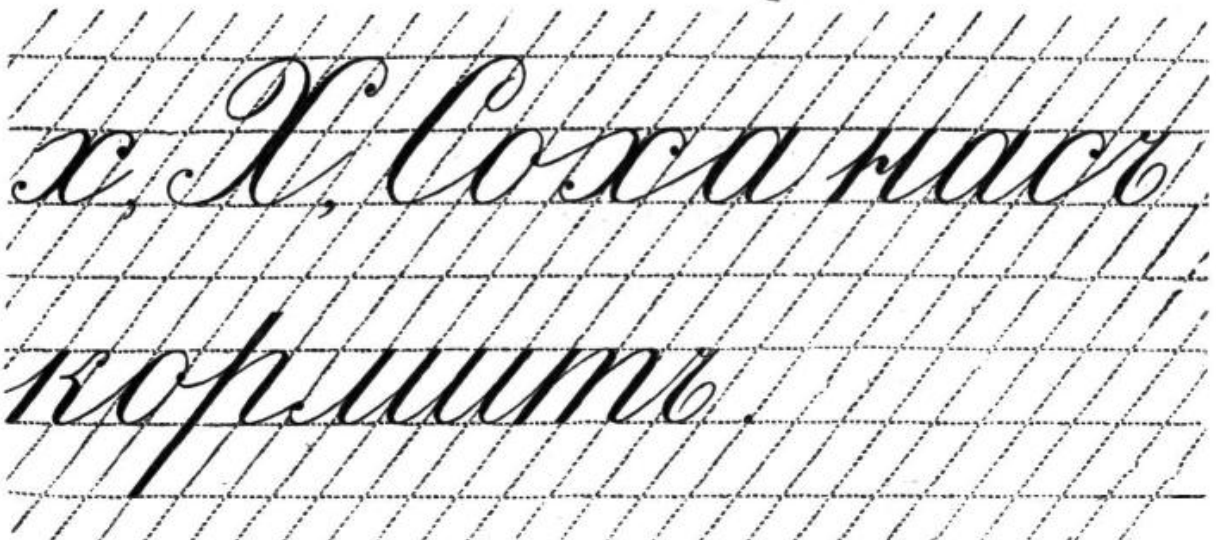 х, Х, Соха насъ
кормитъ.